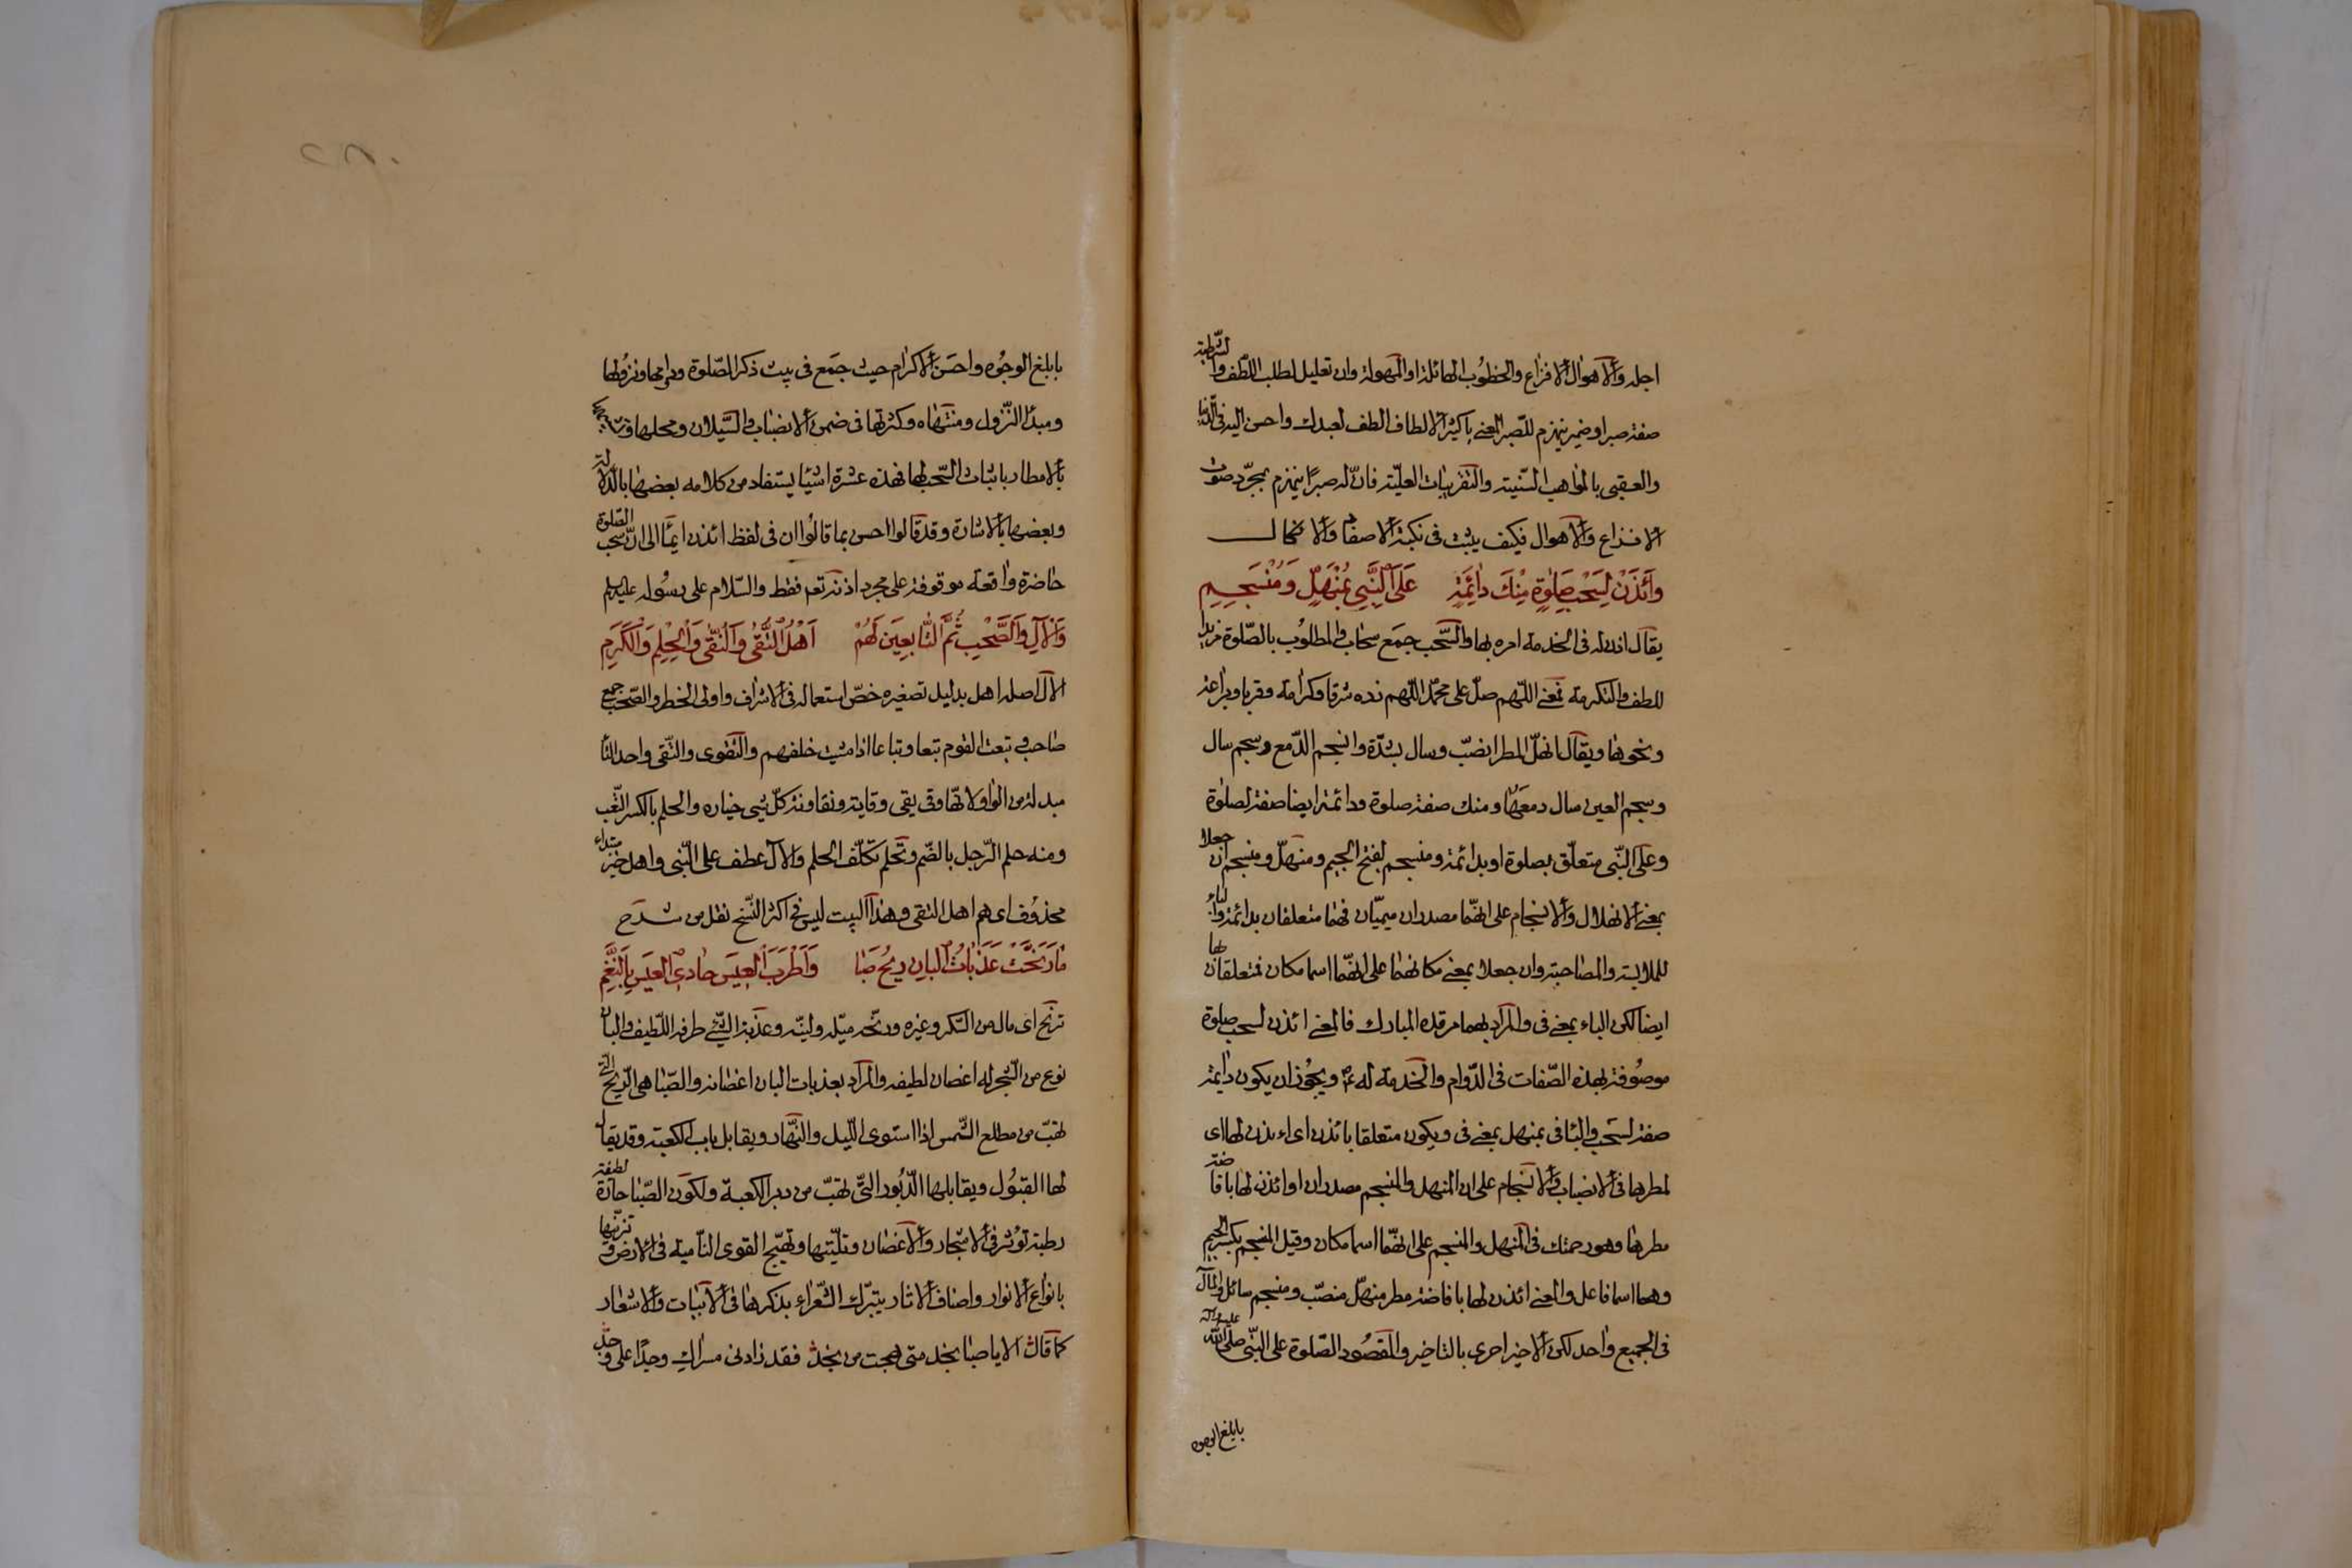 اجله والاهوال الافزاع والخطوب الهائلة او المهولة وان تعليل لطلب اللطف والشرطية
صفة صبرا وضمير ينهزم للصبر المعنى يا كثير الالطاف الطف لعبدك واحسن اليه فى الدنيا
والعقبى بالمواهب السنية والتقربات العلية فان له صبرًا ينهزم بمجرد صوت
الافزاع والاهوال فكيف يثبت فى
وَأْذَنْ لِسُحْبِ صَلٰوةٍ مِنْكَ دٰائِمَةٍ عَلَى النَّبِىِّ بِمُنْهَلٍّ وَمُنْسَجِمِ
يقال اذن له فى الخدمة امره بها والسحب جمع سحاب والمطلوب بالصلوة مزيد
اللطف والتكرمة فمعنى اللهم صل على محمد اللهم زده شرفا وكرامة وقربا
ونحوها ويقال انهل المطر انصب وسال بشدة وانسجم الدمع وسجم سال
وسجم العين سال دمعها ومنك صفة صلوة ودائمة ايضا صفة لصلوة
وعلى النبى متعلق بصلوة او بدائمة ومنسجم بفتح الجيم ومنهل ومنسجم ان جعلا
بمعنى الانهلال والانسجام على انهما مصدران ميميان فهما متعلقان بدائمة والباء
للملابسة والمصاحبة وان جعلا بمعنى مكانهما على انهما اسما مكان فمتعلقان بها
ايضا لكن الباء بمعنى فى والمراد بهما مرقده المبارك فالمعنى ائذن لسحب صلوة
موصوفة بهذه الصفات فى الدوام والخدمة له عم ويجوز ان يكون دائمة
صفة لسحب والباء فى بمنهل بمعنى فى ويكون متعلقا بائذن اى ائذن لها اى
لمطرها فى الانصباب والانسجام على ان المنهل والمنسجم مصدران او ائذن لها بافاضة
مطرها وهو رحمتك فى المنهل والمنسجم على انهما اسما مكان وقيل المنسجم بكسر الجيم
وهما اسما فاعل والمعنى ائذن لها بافاضة مطر منهل منصب ومنسجم سائل والمآل
فى الجميع واحد لكن الاخير احرى بالتاخير والمقصود الصلوة على النبى صلى الله عليه وآله
بابلغ الوجوه
بابلغ الوجوه واحسن الاكرام حيث جمع فى بيت ذكر الصلوة ودوامها ونزولها
ومبدا النزول ومنتهاه وكثرتها فى ضمن الانصباب والسيلان ومحلها
بالامطار باثبات السحب لها فهذه عشرة اشيا يستفاد من كلامه بعضها بالدلالة
وبعضها بالاشارة وقد قالوا احسن بما قالوا ان فى لفظ ائذن ايمأ الى ان سحب الصلوة
حاضرة واقعة موقوفة على مجرد اذنه تعم فقط والسلام على رسوله
وَالْآلِ وَالصَّحْبِ ثُمَّ التَّابِعِينَ لَهُمْ اَهْلُ التُّقٰى وَالنَّقٰى وَالْحِلْمِ وَالْكَرَمِ
الآل اصله اهل بدليل تصغيره خص استعماله فى الاشراف واولى الخطر والصحب جمع
صاحب وتبعت القوم تبعا وتباعا اذا مشيت خلفهم والتقوى والتقى واحد التا
مبدلة من الواو لانها وقى يقى وقاية ونقاوة كل شى خياره والحلم بالكسر
ومنه حلم الرجل بالضم وتحلم تكلف الحلم والآل عطف على النبى واهل خبر مبتداء
محذوف اى هم اهل التقى وهذا البيت ليس فى اكثر النسخ نقل من شرح
مٰا رَنَّحَتْ عَذَبٰاتُ الْبٰانِ رِيحُ صَبًا وَاَطْرَبَ الْعِيسَ حٰادِى الْعِيسِ بِالنَّغَمِ
ترنح اى مال من السكر وغيره ورنحه ميله ولينه وعذبة الشئ طرفه اللطيف والبان
نوع من الشجر له اغصان لطيفه والمراد بعذبات البان اغصانه والصبا هى الريح التى
تهب من مطلع الشمس اذا استوى الليل والنهار ويقابل باب الكعبة وقد يقال
لها القبول ويقابلها الدبور التى تهب من دبر الكعبة ولكون الصبا حارة لطيفة
رطبة تؤثر فى الاشجار والاغصان وتليّنها وتهيّج القوى النامية فى الارض وتزينها
بانواع الانوار واصناف الاثار يتبرك الشعراء بذكرها فى الابيات والاشعار
كما قال الا يا صبا نجد متى هجت من نجد فقد زادنى مسراك وجدًا على وجد